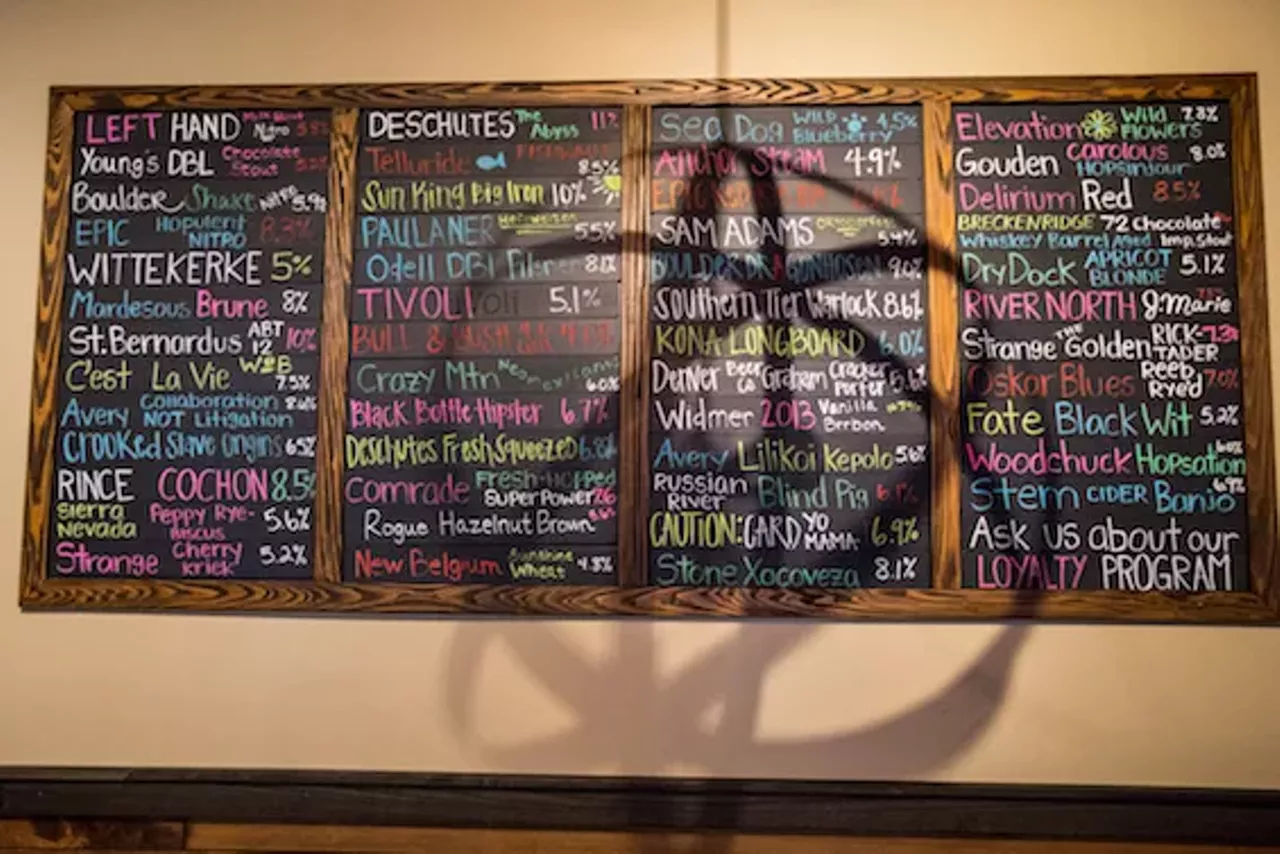 LEFT HAND Milk Stout Nitro
Young's DBL Chocolate Stout 5.2%
Boulder Shake Nitro 5.9%
EPIC Hopulent NITRO 8.3%
WITTEKERKE 5%
Mordesous Brune 8%
St. Bernardus ABT 12 10%
C'est La Vie W2B 7.5%
Avery Collaboration NOT Litigation
Crooked Stave Origins 6.5%
RINCE COCHON 8.5%
Sierra Nevada Peppy Rye-biscus 5.6%
Strange Cherry Kriek 5.2%
DESCHUTES The Abyss 11%
Telluride 8.5%
Sun King Big Iron 10%
PAULANER Hefeweizen 5.5%
Odell DBL Pilsner 8.1%
TIVOLI 5.1%
BULL & BUSH
Crazy Mtn Neomexicanus 6.0%
Black Bottle Hipster 6.7%
DESCHUTES Fresh Squeezed 6.8%
Comrade Fresh-Hopped Superpower
Rogue Hazelnut Brown
New Belgium Sunshine Wheat 4.8%
Sea Dog WILD Blueberry 4.5%
Anchor Steam 4.9%
EPIC
SAM ADAMS Oktoberfest 5.4%
BOULDER DRAGONHOSEN 9.0%
Southern Tier Warlock 8.6%
KONA LONGBOARD 6.0%
Denver Beer Co Graham Cracker Porter 5.6%
Widmer 2013 Vanilla Brrbon
Avery Lilikoi Kepolo 5.6%
RUSSIAN River Blind Pig 6.1%
CAUTION: CARD YO MAMA 6.9%
Stone Xocoveza 8.1%
Elevation Wild FLOWERS 7.8%
Gouden Carolous HOPSINJOUR 8.0%
Delirium Red 8.5%
BRECKENRIDGE 72 Chocolate
Whiskey Barrel Aged Imp. Stout
Dry Dock APRICOT BLONDE 5.1%
RIVER NORTH J. Marie
Strange THE Golden RICK-TADER 7.3%
Oskar Blues Reeb Ryed 7.0%
Fate Black Wit 5.2%
Woodchuck Hopsation
Stem CIDER Banjo 6.9%
Ask us about our
LOYALTY PROGRAM